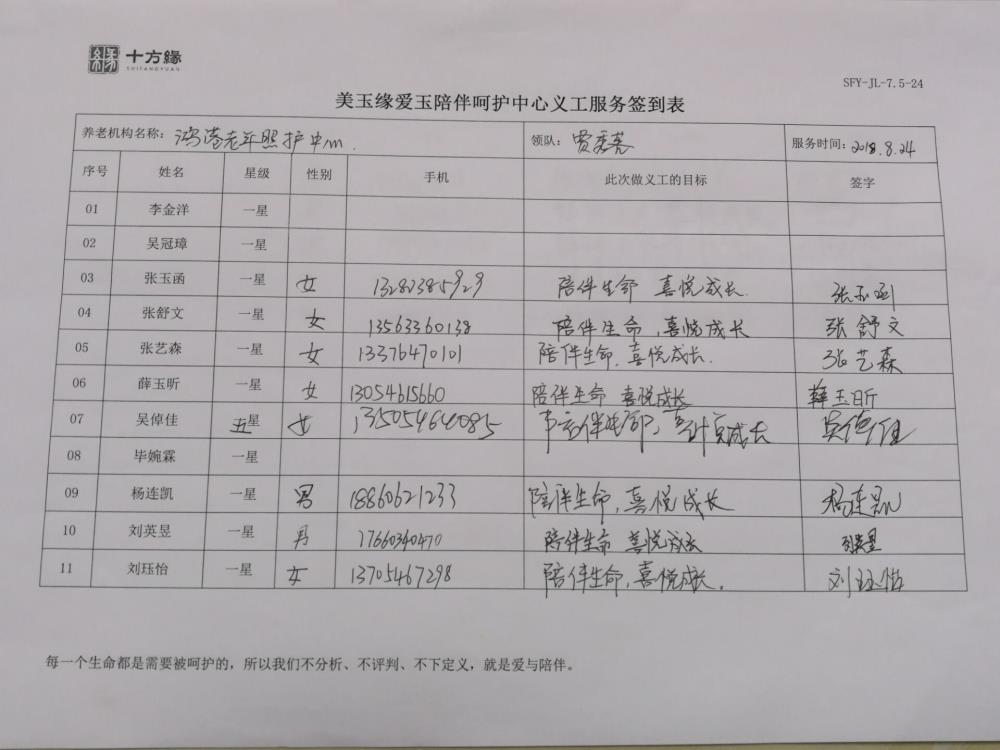 緣 十方緣
SHIFANGYUAN
SFY-JL-7.5-24
美玉缘爱玉陪伴呵护中心义工服务签到表
养老机构名称：鸿港老年照护中心 领队：贾秀亮 服务时间：2018.8.24
序号 姓名 星级 性别 手机 此次做义工的目标 签字
01 李金洋 一星
02 吴冠璋 一星
03 张玉函 一星 女 13282385929 陪伴生命 喜悦成长. 张玉函
04 张舒文 一星 女 13563360138 陪伴生命，喜悦成长 张舒文
05 张艺森 一星 女 13376470101 陪伴生命，喜悦成长. 张艺森
06 薛玉昕 一星 女 13054615660 陪伴生命 喜悦成长 薛玉昕
07 吴倬佳 五星 女 13505464085 成长
08 毕婉霖 一星
09 杨连凯 一星 男 18860621233 陪伴生命，喜悦成长 杨连凯
10 刘英昱 一星 男 17660340470 陪伴生命 喜悦成长 刘英昱
11 刘珏怡 一星 女 13705467298 陪伴生命，喜悦成长. 刘珏怡
每一个生命都是需要被呵护的，所以我们不分析、不评判、不下定义，就是爱与陪伴。